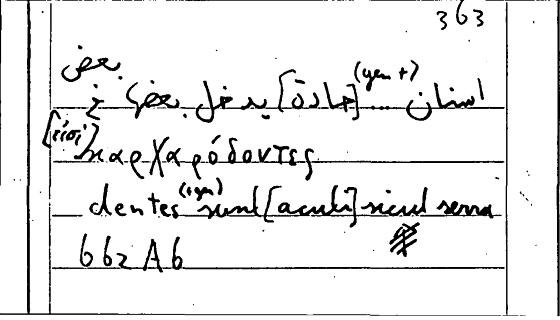 363
اسنان ... (gen +) [حادة] يدخل بعضها في
بعض
[εἰσι] καρχαρόδοντες
dentes (+gen) sunt [acuti] sicut serra
662 A6